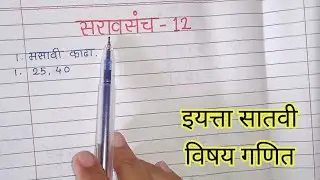 सरावसंच - 12
1. मसावी काढा.
1. 25, 40
इयत्ता सातवी
विषय गणित